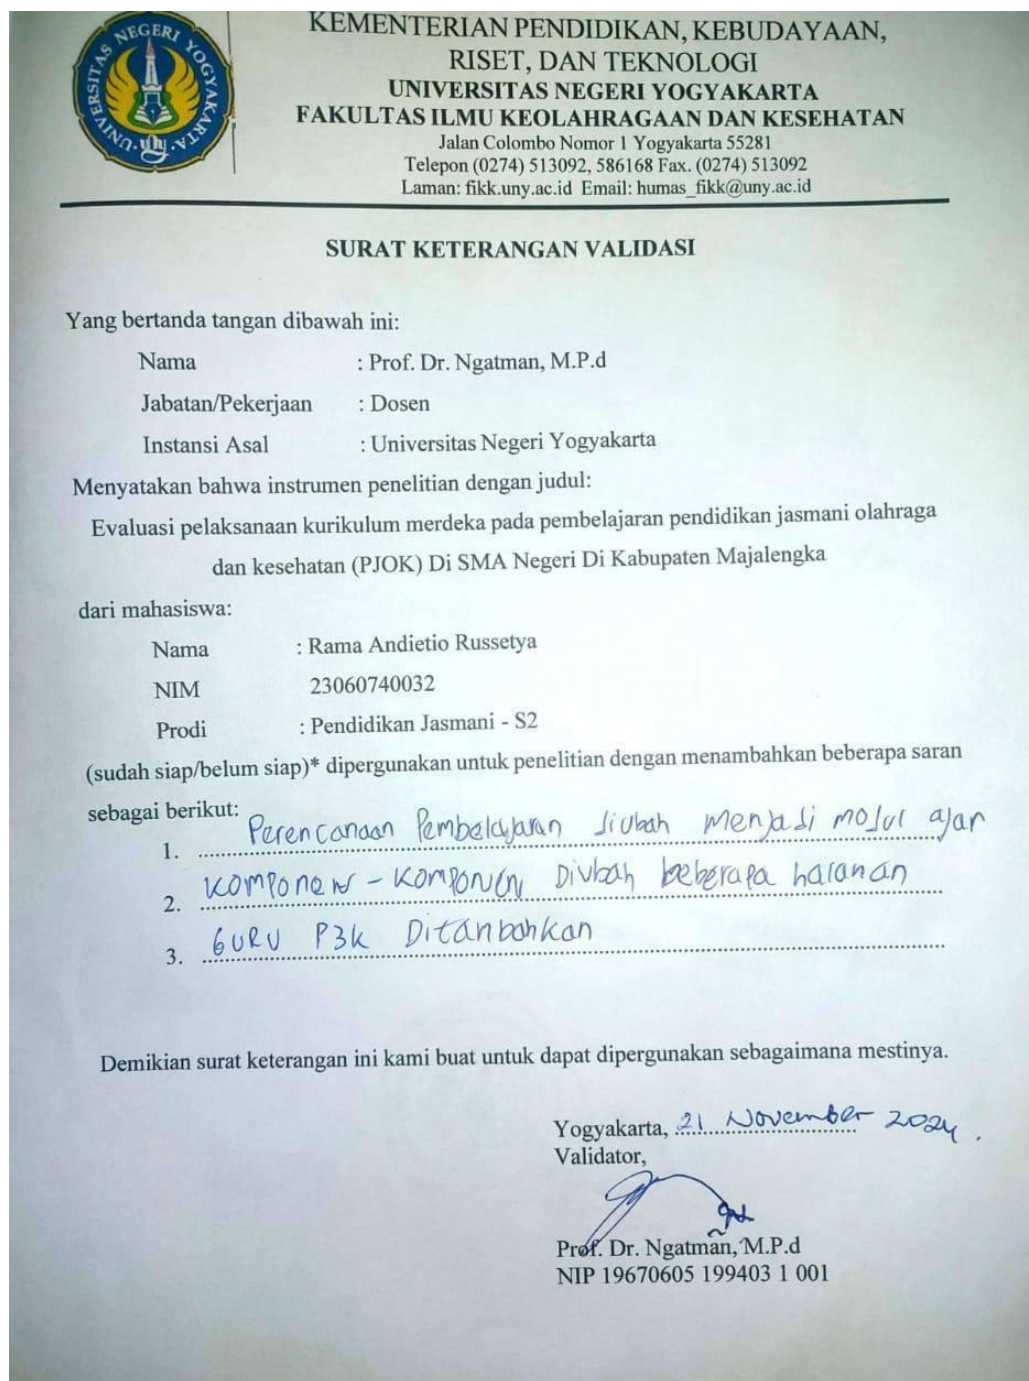 UNIVERSITAS NEGERI YOGYAKARTA
UNY
KEMENTERIAN PENDIDIKAN, KEBUDAYAAN,
RISET, DAN TEKNOLOGI
UNIVERSITAS NEGERI YOGYAKARTA
FAKULTAS ILMU KEOLAHRAGAAN DAN KESEHATAN
Jalan Colombo Nomor 1 Yogyakarta 55281
Telepon (0274) 513092, 586168 Fax. (0274) 513092
Laman: fikk.uny.ac.id Email: humas_fikk@uny.ac.id
SURAT KETERANGAN VALIDASI
Yang bertanda tangan dibawah ini:
Nama : Prof. Dr. Ngatman, M.P.d
Jabatan/Pekerjaan : Dosen
Instansi Asal : Universitas Negeri Yogyakarta
Menyatakan bahwa instrumen penelitian dengan judul:
Evaluasi pelaksanaan kurikulum merdeka pada pembelajaran pendidikan jasmani olahraga
dan kesehatan (PJOK) Di SMA Negeri Di Kabupaten Majalengka
dari mahasiswa:
Nama : Rama Andietio Russetya
NIM 23060740032
Prodi : Pendidikan Jasmani - S2
(sudah siap/belum siap)* dipergunakan untuk penelitian dengan menambahkan beberapa saran
sebagai berikut:
1. Perencanaan Pembelajaran diubah menjadi modul ajar
2. Komponen - Komponen Diubah beberapa halaman
3. GURU P3K Ditambahkan
Demikian surat keterangan ini kami buat untuk dapat dipergunakan sebagaimana mestinya.
Yogyakarta, 21 November 2024.
Validator,
Prof. Dr. Ngatman, M.P.d
NIP 19670605 199403 1 001